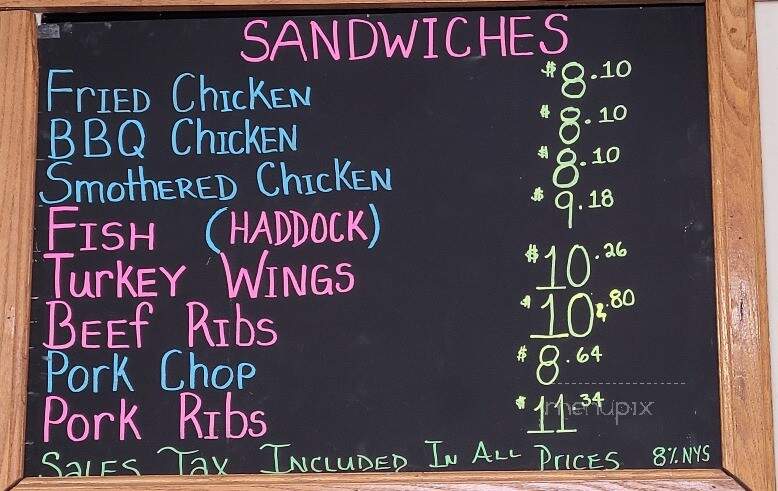 SANDWICHES
FRIED CHICKEN $8.10
BBQ CHICKEN $8.10
SMOTHERED CHICKEN $8.10
FISH (HADDOCK) $9.18
TURKEY WINGS $10.26
BEEF RIBS $10.80
PORK CHOP $8.64
PORK RIBS $11.34
menupix
SALES TAX INCLUDED IN ALL PRICES 8% NYS